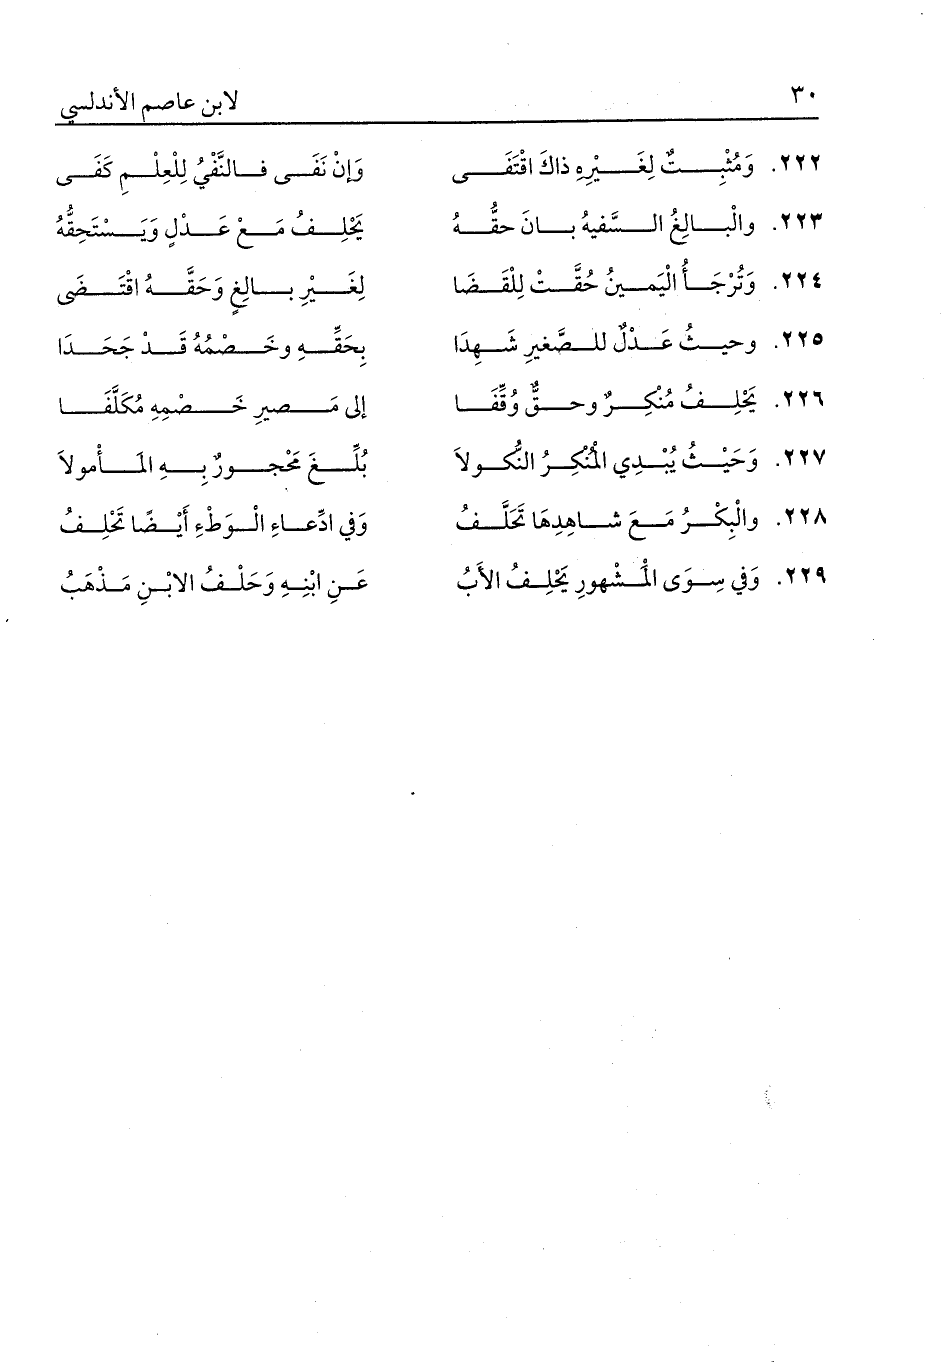 ٣٠ لابن عاصم الأندلسي
٢٢٢. وَمُثْبِتٌ لِغَيْرِهِ ذاكَ اقْتَفَى وَإنْ نَفَى فالنَّفْيُ لِلْعِلْمِ كَفَى
٢٢٣. والْبالِغُ السَّفيهُ بانَ حقُّهُ يَحْلِفُ مَعْ عَدْلٍ وَيَسْتَحِقُّهُ
٢٢٤. وَتُرْجَأُ الْيَمينُ حُقَّتْ لِلْقَضَا لِغَيْرِ بالِغٍ وَحَقَّهُ اقْتَضَى
٢٢٥. وحيثُ عَدْلٌ للصَّغيرِ شَهِدَا بِحَقِّهِ وخَصْمُهُ قَدْ جَحَدَا
٢٢٦. يَحْلِفُ مُنْكِرٌ وحقٌّ وُقِّفَا إلى مَصيرِ خَصْمِهِ مُكَلَّفَا
٢٢٧. وَحَيْثُ يُبْدِي المُنْكِرُ النُّكولاَ بُلِّغَ مَحْجورٌ بِهِ المَأْمولاَ
٢٢٨. والْبِكْرُ مَعَ شاهِدِهَا تَحَلَّفُ وَفي ادِّعاءِ الْوَطْءِ أَيْضًا تَحْلِفُ
٢٢٩. وَفي سِوَى المَشْهورِ يَحْلِفُ الأَبُ عَنِ ابْنِهِ وَحَلْفُ الابْنِ مَذْهَبُ